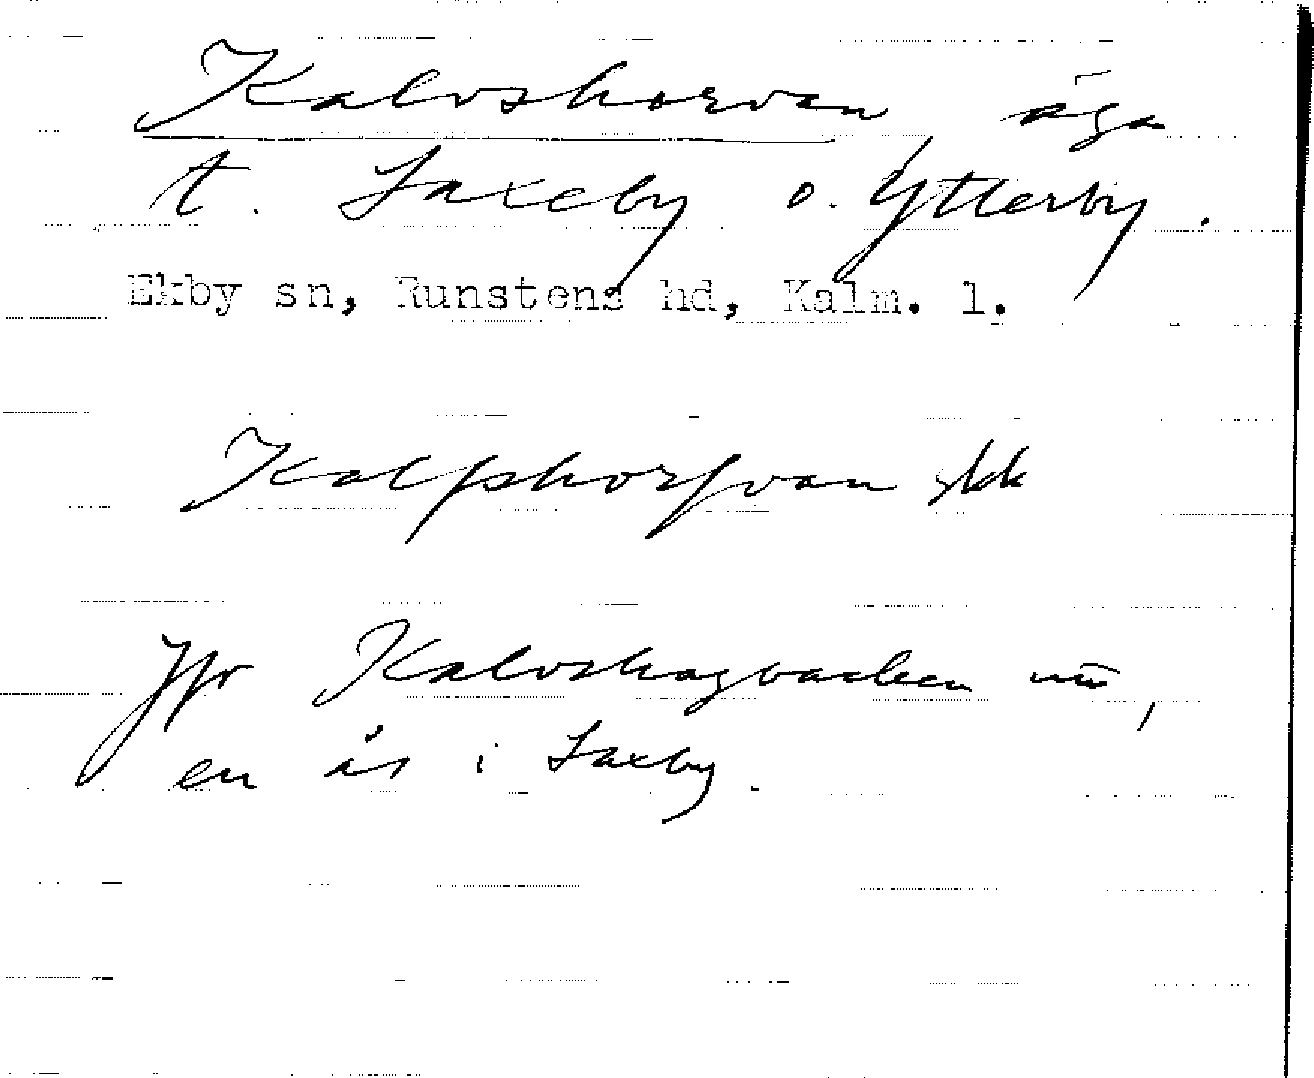 Kalvshorvan, äga
t. Saxeby o. Ytterby.
Ekby sn, Runstens hd, Kalm. l.
Kalfshorfvan skk
Jfr Kalvshagbacken nu,
en ås i Saxby.